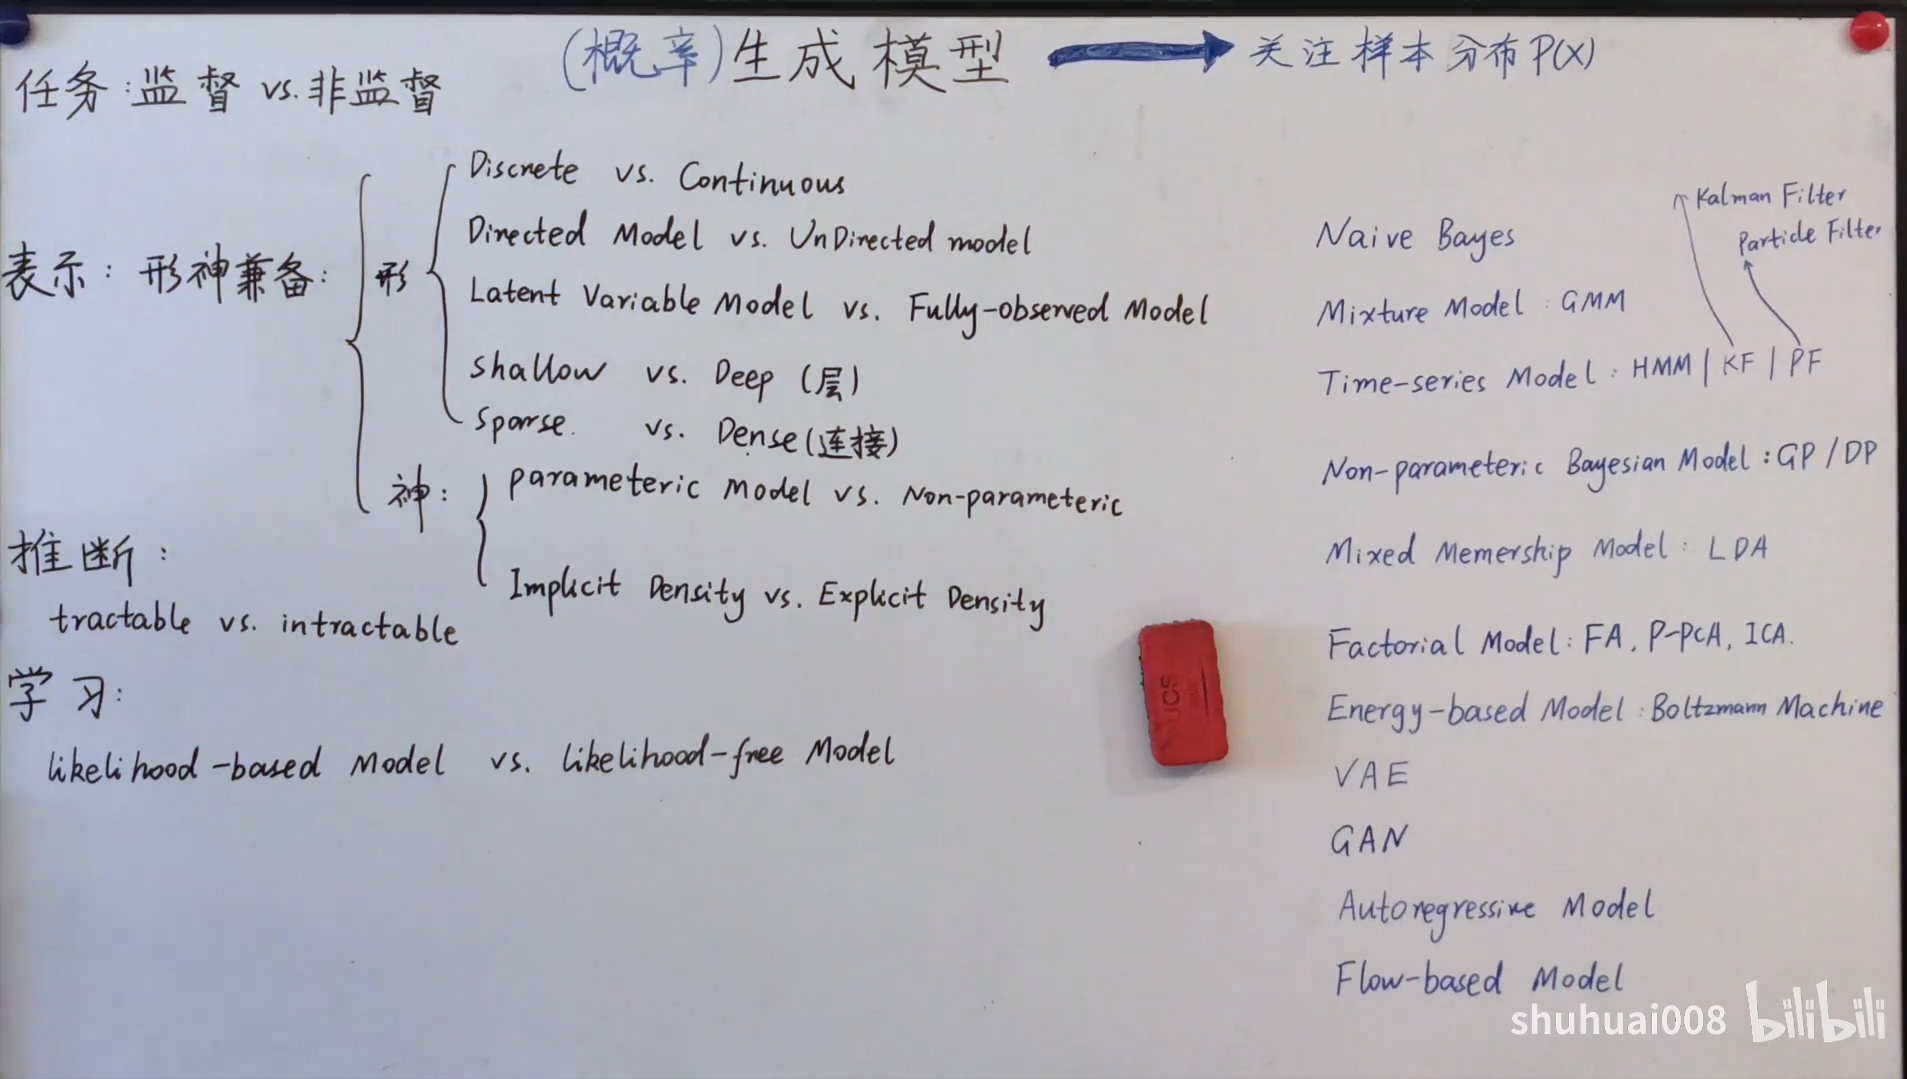 (概率)生成模型 → 关注样本分布P(X)
任务:监督 vs.非监督
表示:形神兼备:
形
Discrete vs. Continuous
Directed Model vs. UnDirected model
Latent Variable Model vs. Fully-observed Model
Shallow vs. Deep (层)
Sparse. vs. Dense(连接)
神:
parameteric Model vs. Non-parameteric
Implicit Density vs. Explicit Density
推断:
tractable vs. intractable
学习:
likelihood-based Model vs. likelihood-free Model
Kalman Filter
Particle Filter
Naive Bayes
Mixture Model : GMM
Time-series Model : HMM | KF | PF
Non-parameteric Bayesian Model : GP / DP
Mixed Memership Model : LDA
Factorial Model : FA, P-PCA, ICA.
Energy-based Model : Boltzmann Machine
VAE
GAN
Autoregressive Model
Flow-based Model
shuhuai008 bilibili